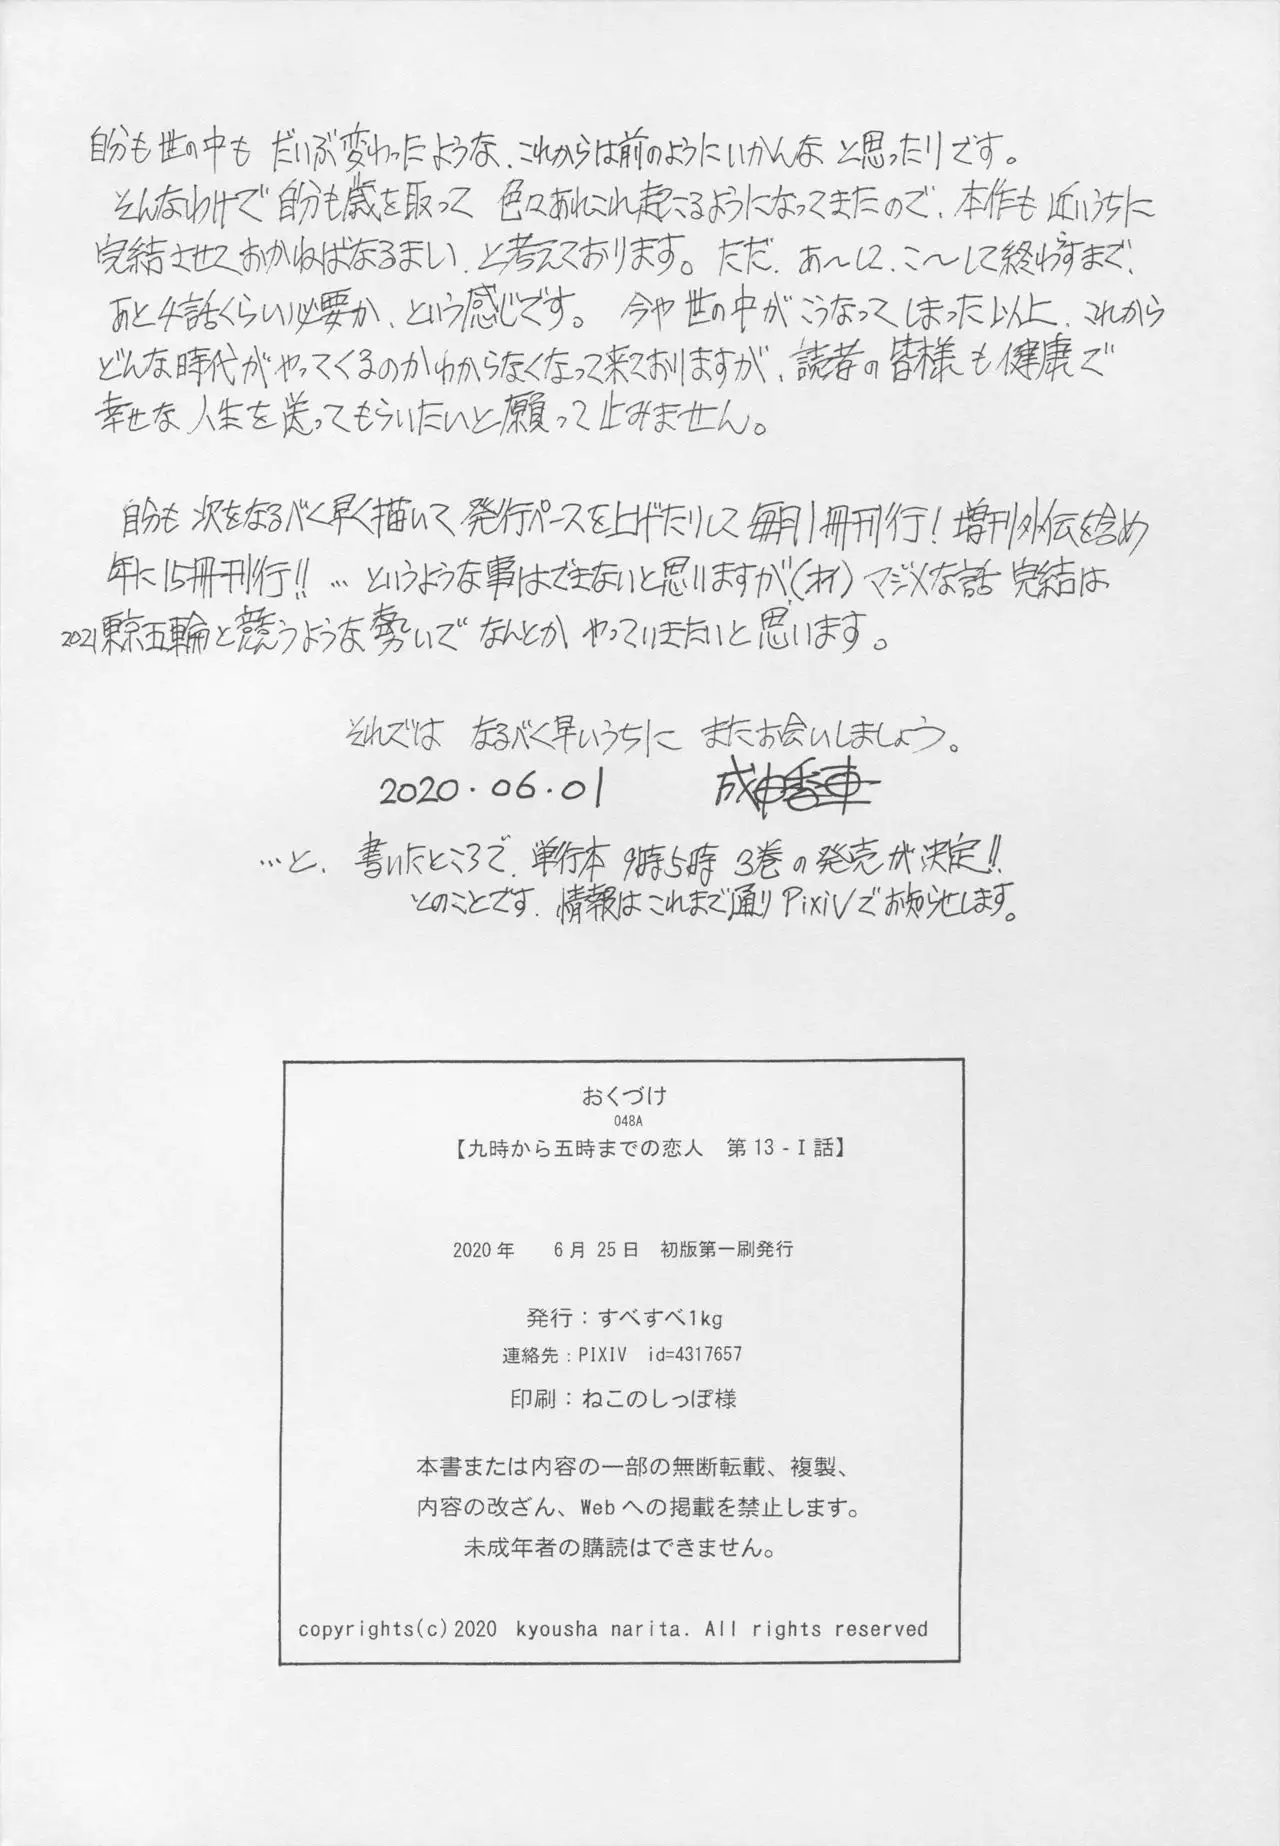 自分も世の中も だいぶ変わったような、これからは前のようにいかんな と思ったりです。
そんなわけで自分も歳を取って 色々あれこれ起こるようになってきたので、本作も近いうちに
完結させておかねばなるまい、と考えております。ただ、あ〜して、こ〜して終わらすまで、
あと4話くらい必要か、という感じです。 今や世の中がこうなってしまった以上、これから
どんな時代がやってくるのかわからなくなって来ておりますが、読者の皆様も健康で
幸せな人生を送ってもらいたいと願って止みません。
自分も次をなるべく早く描いて発行ペースを上げたりして毎月1冊刊行!増刊外伝を含め
年に15冊刊行!!…というような事はできないと思いますが(オイ)マジメな話 完結は
2021東京五輪と競うような勢いで なんとか やっていきたいと思います。
それでは なるべく早いうちに またお会いしましょう。
2020.06.01 成田香車
…と、書いたところで、単行本 9時5時 3巻の発売が決定!!
とのことです、情報はこれまで通りPixivでお知らせします。
おくづけ
048A
【九時から五時までの恋人 第13-I話】
2020年 6月25日 初版第一刷発行
発行:すべすべ1kg
連絡先:PIXIV id=4317657
印刷:ねこのしっぽ様
本書または内容の一部の無断転載、複製、
内容の改ざん、Webへの掲載を禁止します。
未成年者の購読はできません。
copyrights(c)2020 kyousha narita. All rights reserved